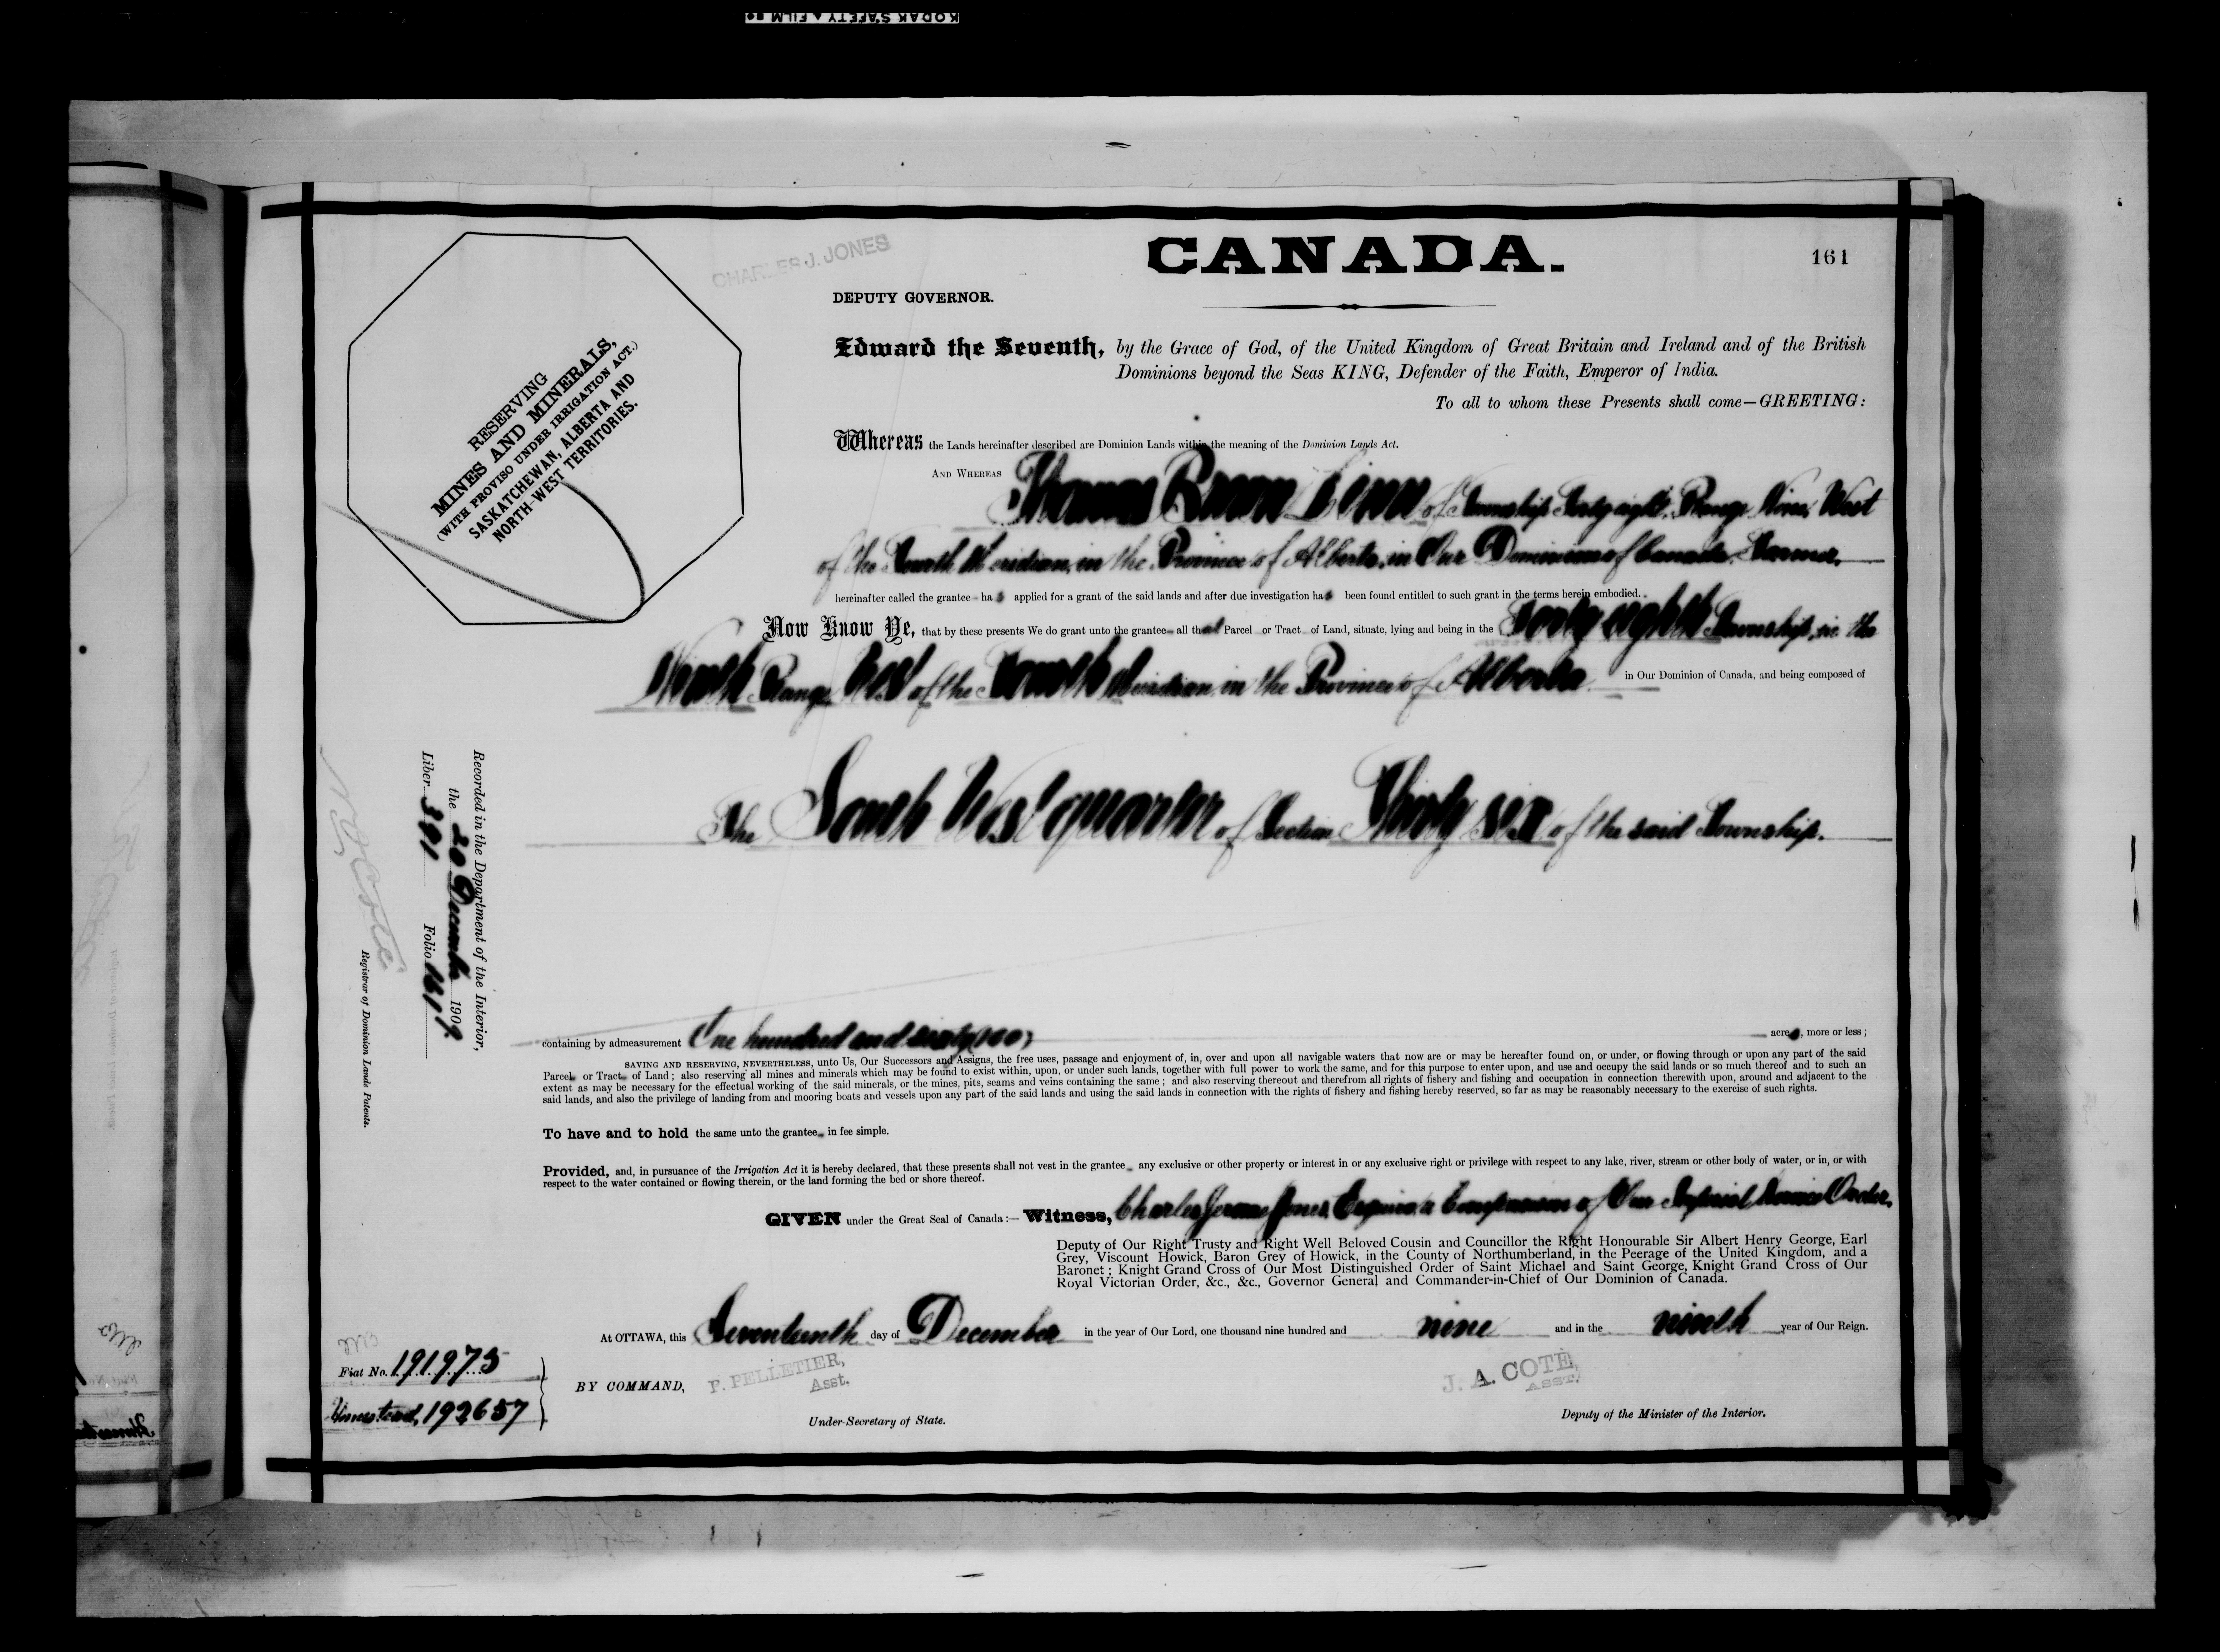 KODAK SAFETY FILM
CANADA.
161
CHARLES J. JONES
DEPUTY GOVERNOR.
RESERVING
MINES AND MINERALS,
(WITH PROVISO UNDER IRRIGATION ACT.)
SASKATCHEWAN, ALBERTA AND
NORTH-WEST TERRITORIES.
Edward the Seventh, by the Grace of God, of the United Kingdom of Great Britain and Ireland and of the British
Dominions beyond the Seas KING, Defender of the Faith, Emperor of India.
To all to whom these Presents shall come—GREETING:
Whereas the Lands hereinafter described are Dominion Lands within the meaning of the Dominion Lands Act.
AND WHEREAS Thomas of Township Forty eight, Range Nine, West
of the Fourth Meridian, in the Province of Alberta, in Our Dominion of Canada, Farmer,
hereinafter called the grantee has applied for a grant of the said lands and after due investigation has been found entitled to such grant in the terms herein embodied.
Now Know Ye, that by these presents We do grant unto the grantee all that Parcel or Tract of Land, situate, lying and being in the Forty eighth Township, in the
Ninth Range West of the Fourth Meridian, in the Province of Alberta in Our Dominion of Canada, and being composed of
The South West quarter of Section Thirty six of the said Township.
Recorded in the Department of the Interior,
the 20 December 1909.
Liber 391 Folio 161
Registrar of Dominion Lands Patents.
containing by admeasurement One hundred and sixty acres, more or less;
SAVING AND RESERVING, NEVERTHELESS, unto Us, Our Successors and Assigns, the free uses, passage and enjoyment of, in, over and upon all navigable waters that now are or may be hereafter found on, or under, or flowing through or upon any part of the said
Parcel or Tract of Land; also reserving all mines and minerals which may be found to exist within, upon, or under such lands, together with full power to work the same, and for this purpose to enter upon, and use and occupy the said lands or so much thereof and to such an
extent as may be necessary for the effectual working of the said minerals, or the mines, pits, seams and veins containing the same; and also reserving thereout and therefrom all rights of fishery and fishing and occupation in connection therewith upon, around and adjacent to the
said lands, and also the privilege of landing from and mooring boats and vessels upon any part of the said lands and using the said lands in connection with the rights of fishery and fishing hereby reserved, so far as may be reasonably necessary to the exercise of such rights.
To have and to hold the same unto the grantee in fee simple.
Provided, and, in pursuance of the Irrigation Act it is hereby declared, that these presents shall not vest in the grantee any exclusive or other property or interest in or any exclusive right or privilege with respect to any lake, river, stream or other body of water, or in, or with
respect to the water contained or flowing therein, or the land forming the bed or shore thereof.
GIVEN under the Great Seal of Canada:— Witness, Charles Jerome Jones, Esquire, a Companion of Our Imperial Service Order,
Deputy of Our Right Trusty and Right Well Beloved Cousin and Councillor the Right Honourable Sir Albert Henry George, Earl
Grey, Viscount Howick, Baron Grey of Howick, in the County of Northumberland, in the Peerage of the United Kingdom, and a
Baronet; Knight Grand Cross of Our Most Distinguished Order of Saint Michael and Saint George, Knight Grand Cross of Our
Royal Victorian Order, &c., &c., Governor General and Commander-in-Chief of Our Dominion of Canada.
At OTTAWA, this Seventeenth day of December in the year of Our Lord, one thousand nine hundred and nine and in the ninth year of Our Reign.
Fiat No. 191975
Homestead, 192657
BY COMMAND,
P. PELLETIER,
Asst.
Under-Secretary of State.
J. A. COTE,
ASST.
Deputy of the Minister of the Interior.